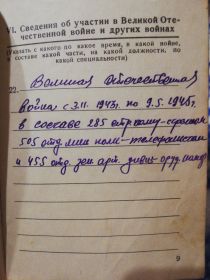 VI. Сведения об участии в Великой Оте-
чественной войне и других войнах
(Указать с какого до какое время, в какой войне,
в составе какой части, на какой должности, по
какой специальности)
22. Великая Отечественная
война с 3.11.1943г. по 9.5.1945г.
в составе 285 стр
505 отд мин полк - телефонистом
и 455 отд зен арт. дивиз-
9